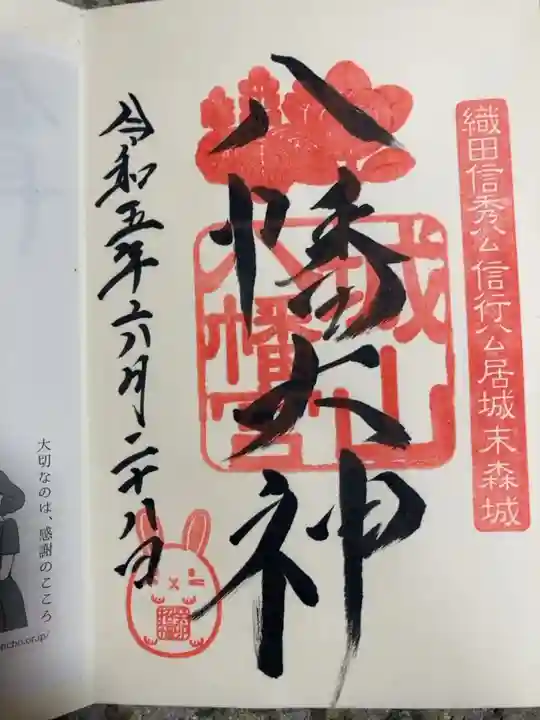 織田信秀公信行公居城末森城
八幡大神
城山
八幡宮
令和五年六月二十八日
大切なのは、感謝のこころ
ncho.or.jp/